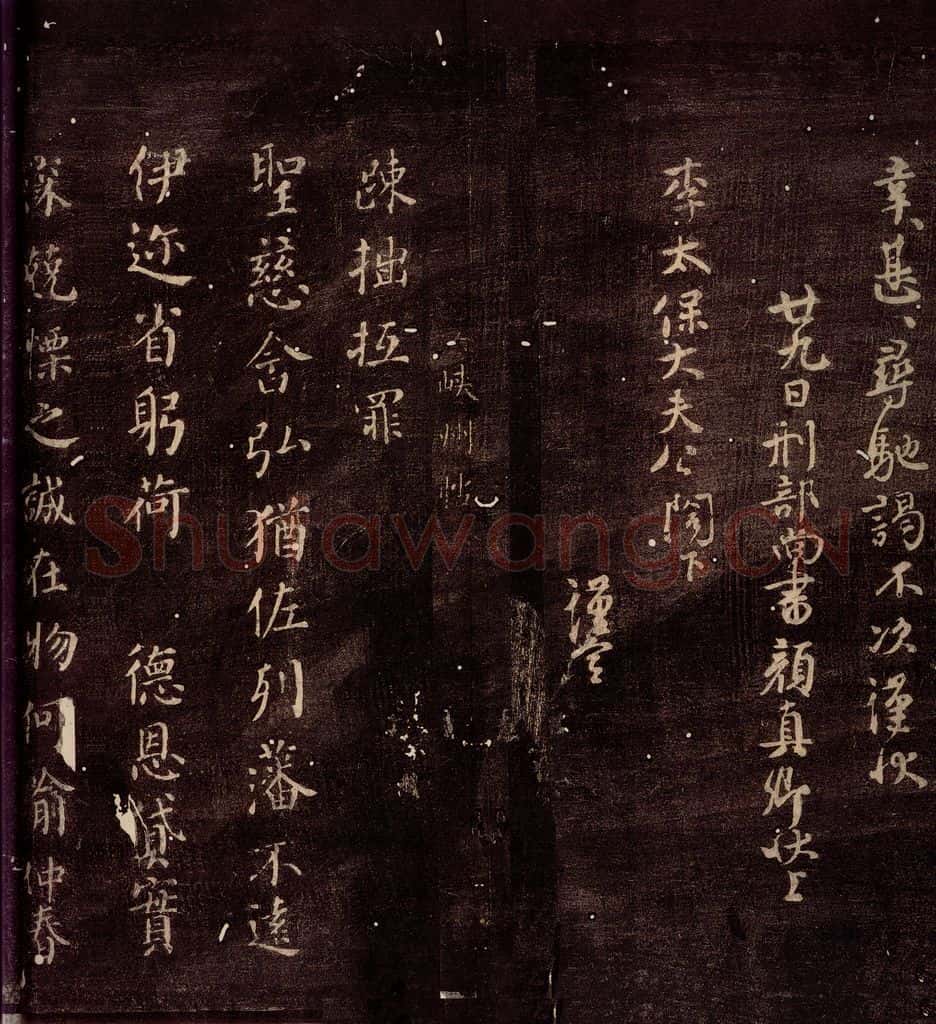 幸〻甚〻尋馳謁不次謹狀
廿九日刑部尚書顔真卿狀上
李太保大夫公閤下
謹空
峽州帖
疎拙抵罪
聖慈含弘猶佐列藩不遠
伊迩省躬荷 德恩貸實
深兢慄之誠在物何喻仲春
Shufawang.CN